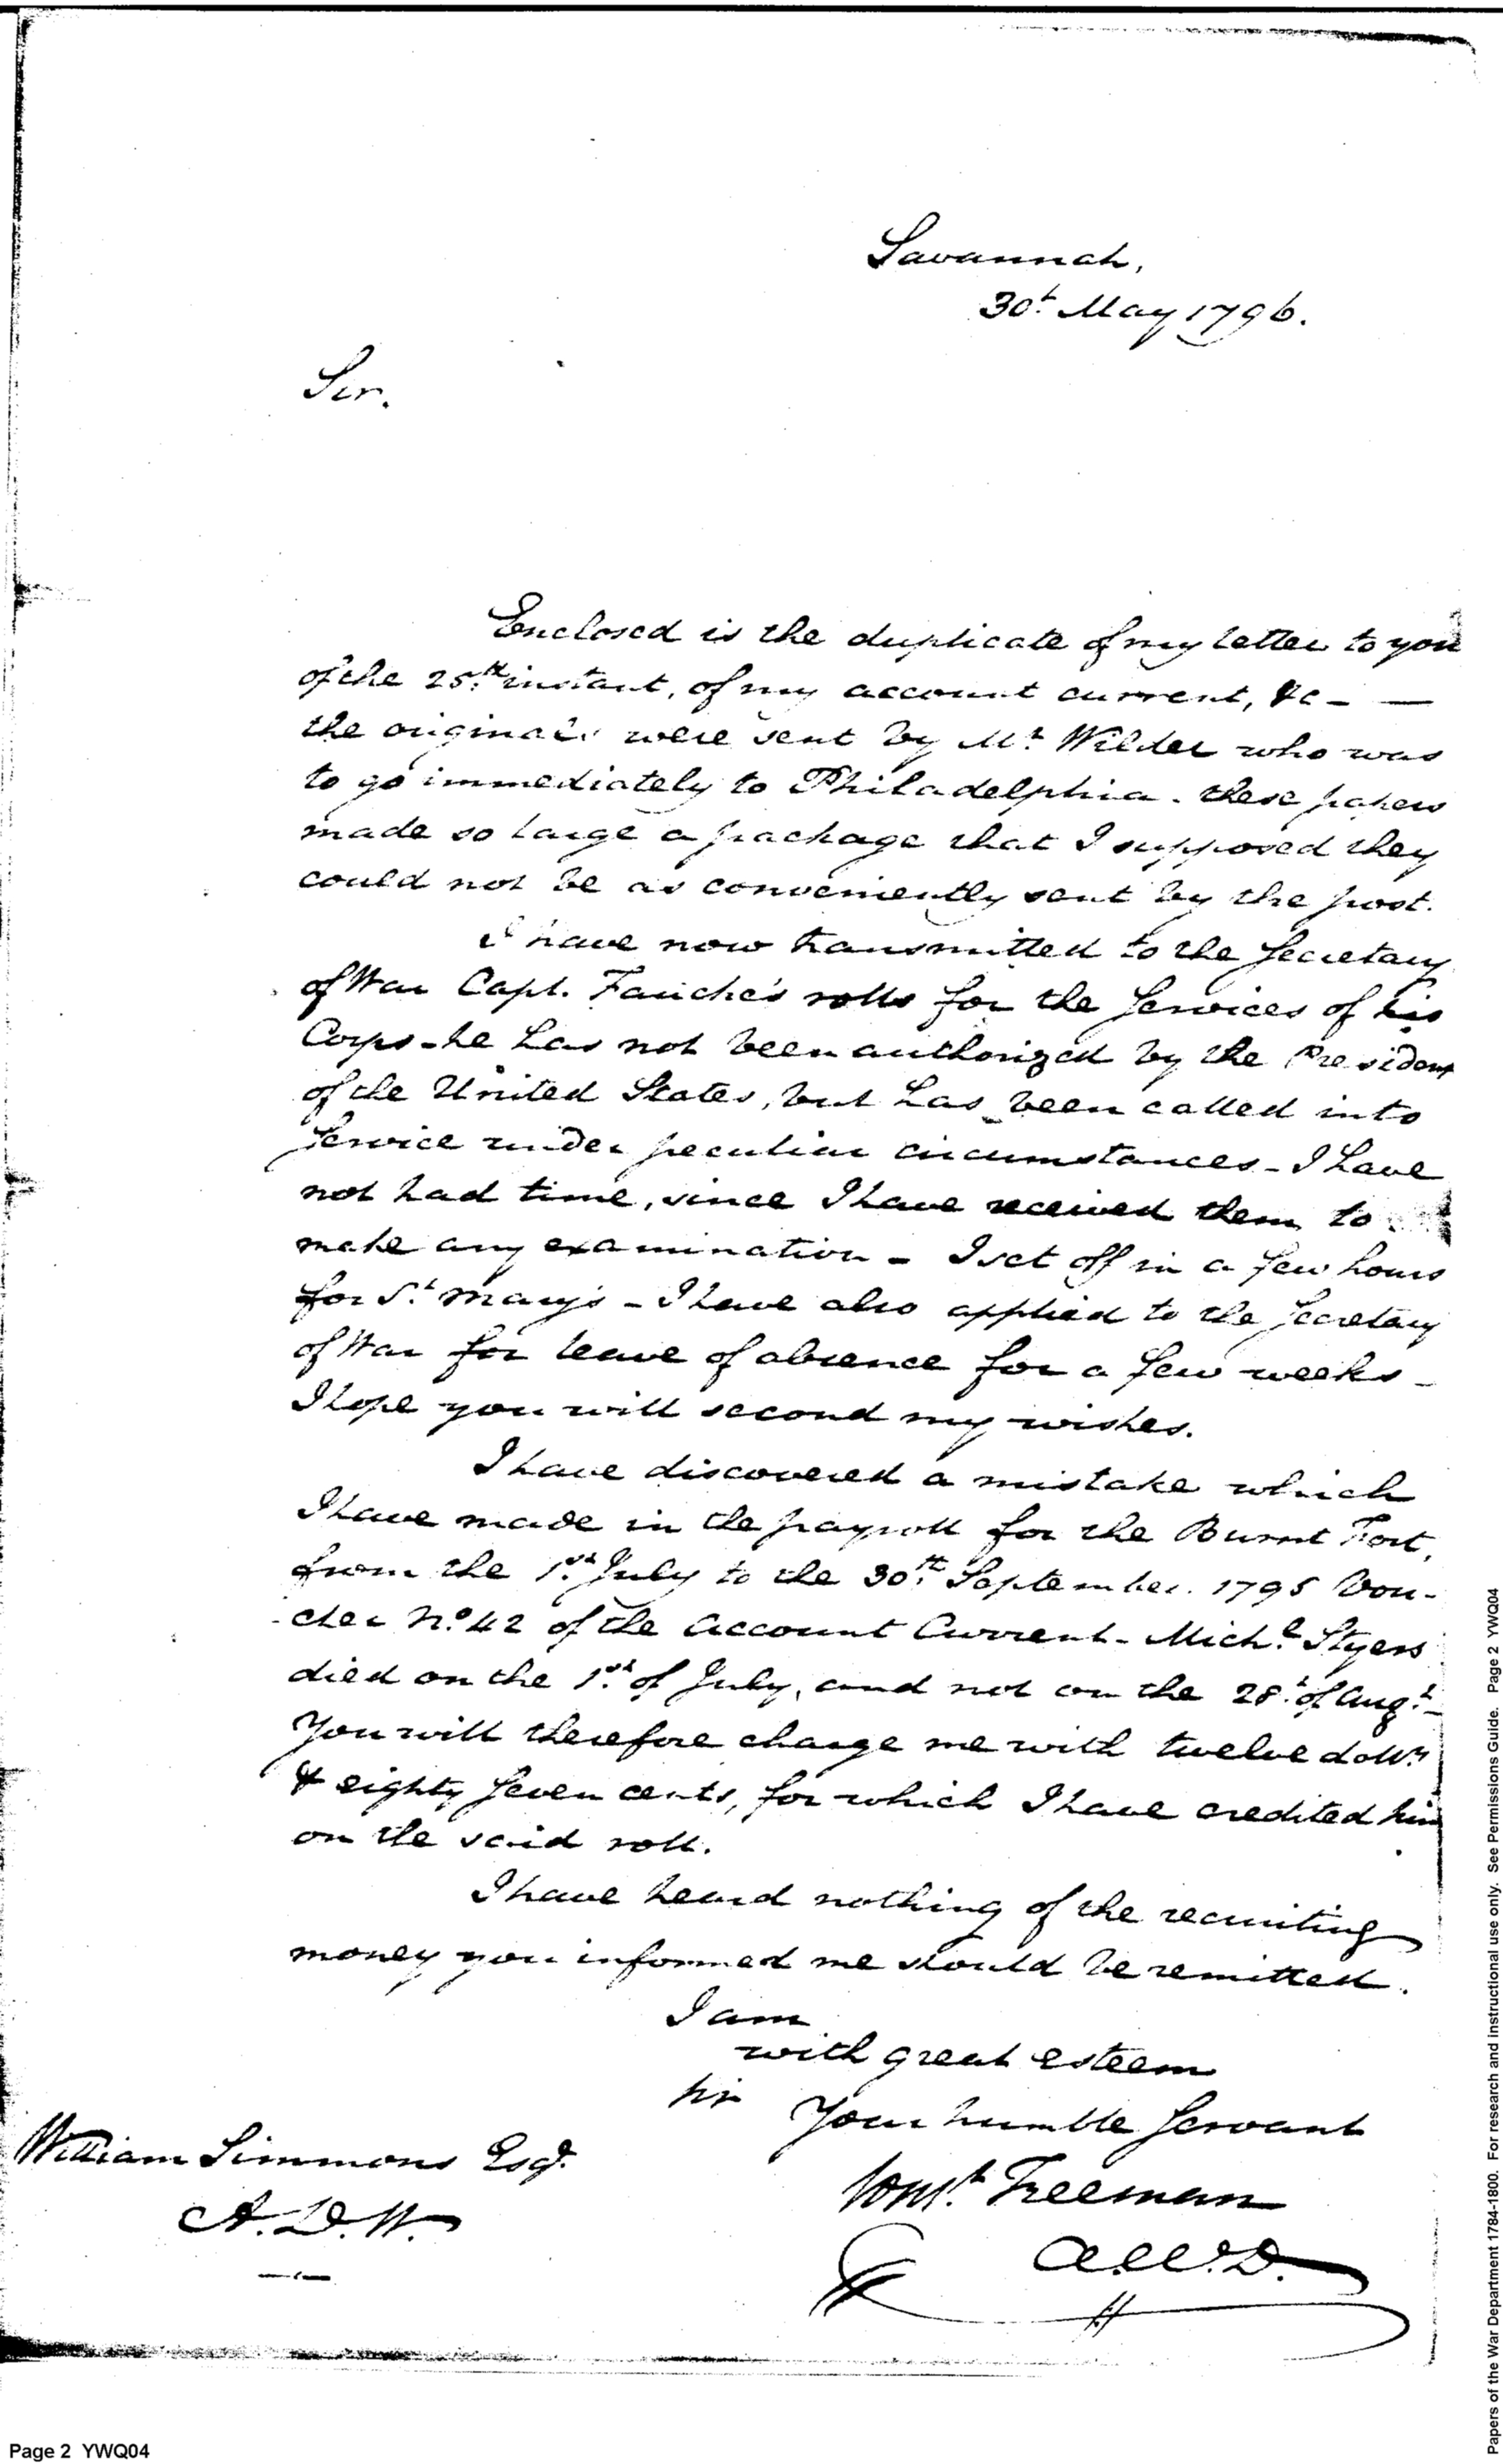 Savannah,
30t May 1796.
Sir.
Enclosed is the duplicate of my letter to you
of the 25th instant, of my account current, &c - —
the originals were sent by Mr Wilder who was
to go immediately to Philadelphia. these papers
made so large a package that I supposed they
could not be as conveniently sent by the post.
I have now transmitted to the Secretary
of War Capt. Fauche's rolls for the Services of his
Corps - he has not been authorized by the President
of the United States, but has been called into
Service under peculiar circumstances - I have
not had time, since I have received them to
make any examination - I set off in a few hours
for St Mary's - I have also applied to the Secretary
of War for leave of absence for a few weeks -
I hope you will second my wishes.
I have discovered a mistake which
I have made in the payroll for the Burnt Fort,
from the 1st July to the 30th September. 1795 Vou-
cher No 42 of the Account Current - Michl Styers
died on the 1st of July, and not on the 28t of Augt -
You will therefore charge me with twelve dollrs
& eighty seven cents, for which I have credited him
on the said roll.
I have heard nothing of the recruiting
money you informed me should be remitted.
I am
with great esteem
Sir Your humble Servant
Const Freeman
A.W.D.
William Simmons Esqr.
A.D.W.
Page 2 YWQ04
Papers of the War Department 1784-1800. For research and instructional use only. See Permissions Guide. Page 2 YWQ04